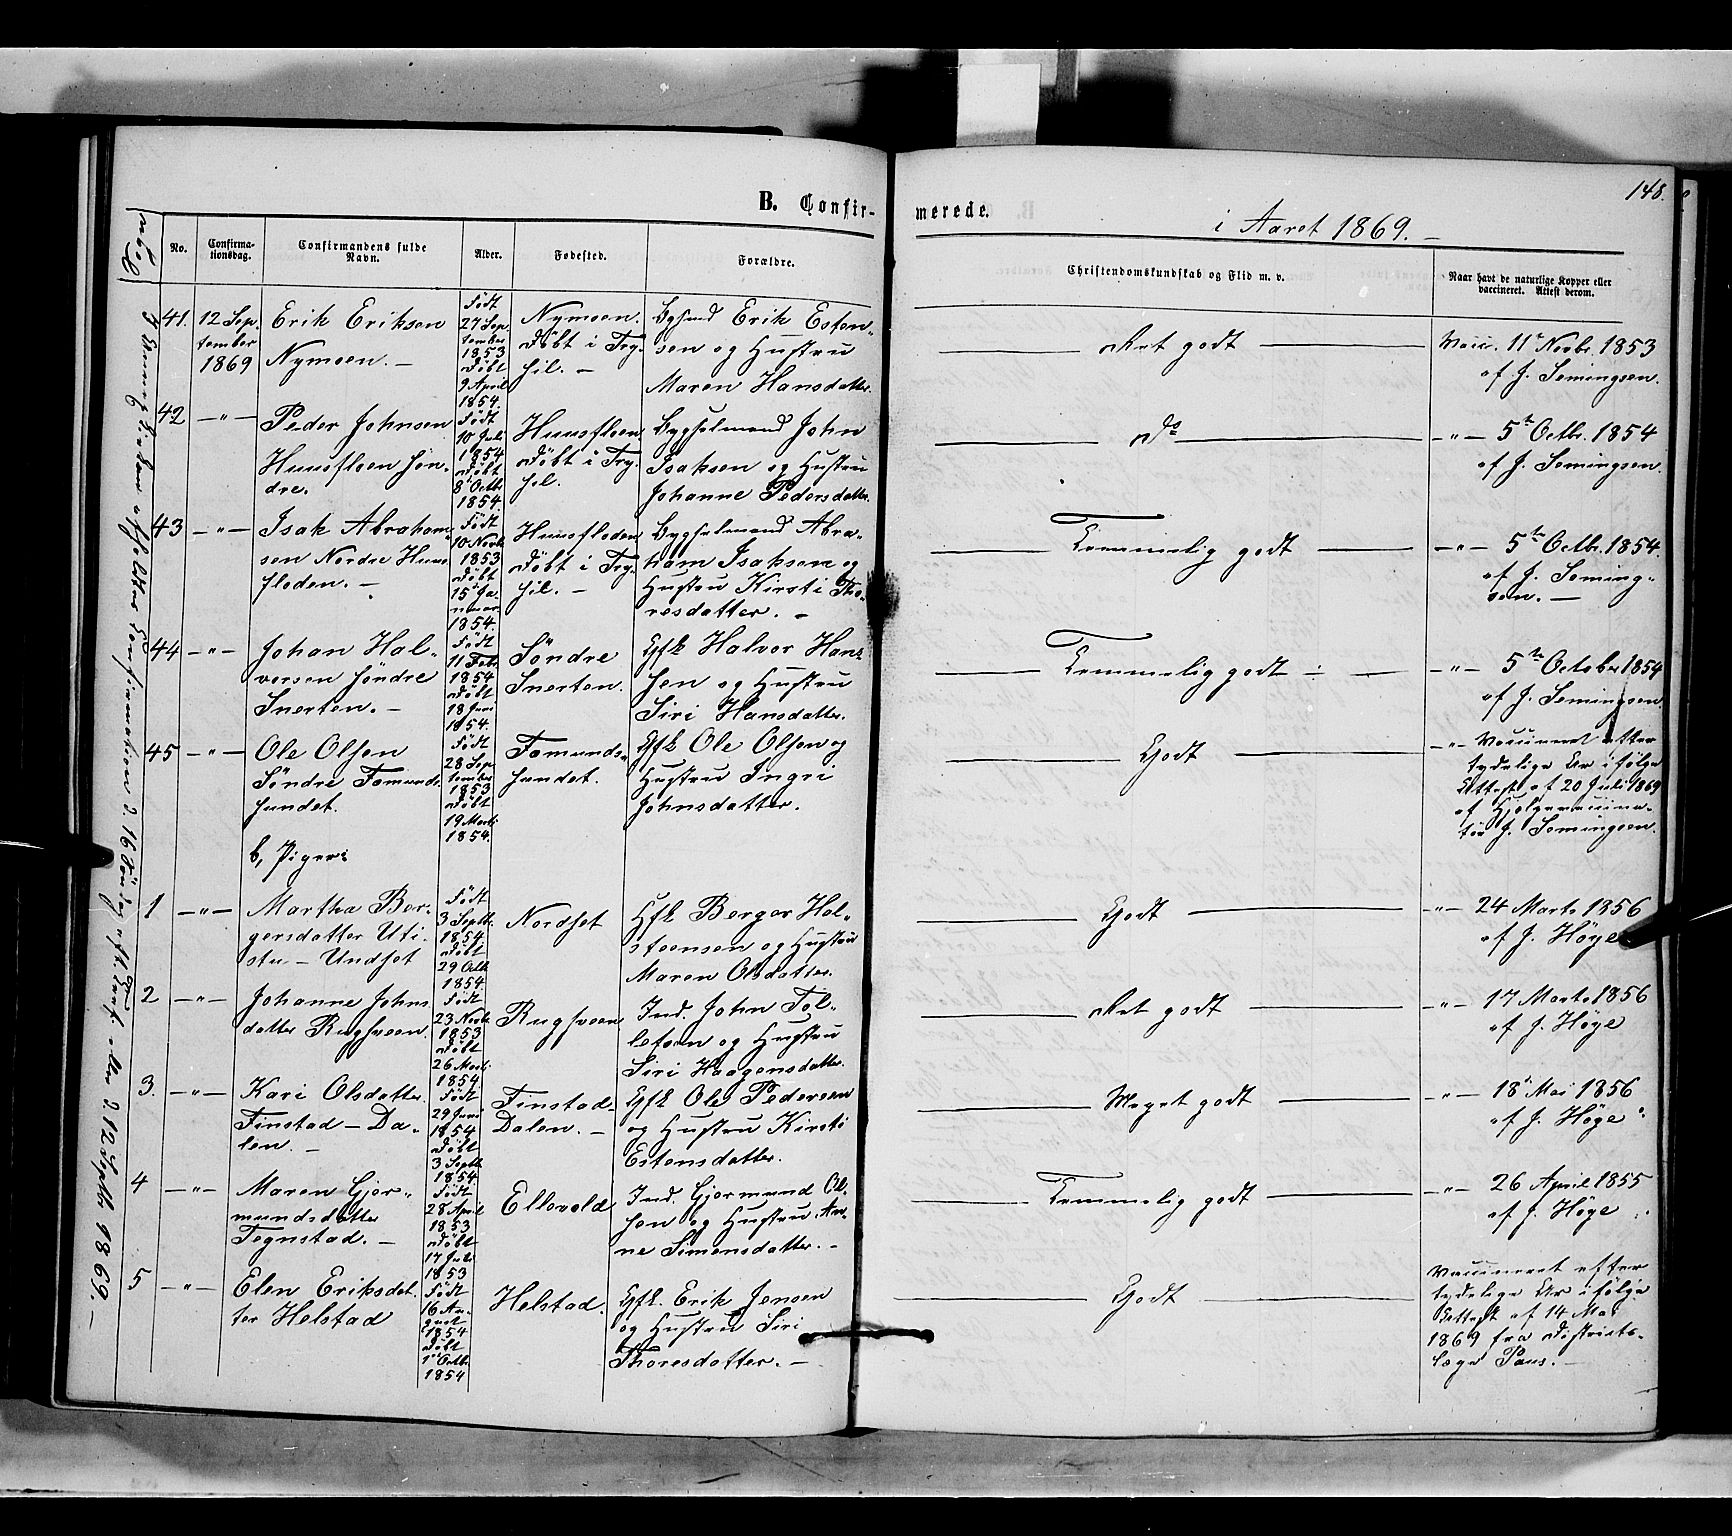 148.
B. Confir-
merede.
i Aaret 1869. –
No.
Confirma-
tionsdag.
Confirmandens fulde
Navn.
Alder.
Fødested.
Forældre.
Christendomskundskab og Flid m. v.
Naar havt de naturlige Kopper eller
vaccineret. Attest derom.
41.
12 Sep.
tember
1869
Erik Eriksen
Nymoen. –
Født
27 Sep.
tember
1853
Døbt
9 April
1854.
Nymoen.
Døbt i Try-
sil. –
Erik Esten-
sen og Hustru
Maren Hansdatter.
Ret godt
Vacc. 11 Novbr. 1853
af J. Semingsen.
42
– " –
Peder Johnsen
Huusfloen Søn-
dre.
Født
10 Juli
1854
Døbt
8 Octbr
1854.
Huusfloen.
Døbt i Try-
sil.
Bygselmand John
Isaksen og Hustru
Johanne Pedersdatter.
Do
– " – 5te Octbr. 1854
af J. Semingsen.
43
– " –
Isak Abraham-
sen Nordre Huus-
floden. –
Født
10 Novbr
1853
Døbt
15 Ja-
nuar
1854.
Huusfloden
Døbt i Try-
sil. –
Bygselmand Abra-
ham Isaksen og
Hustru Kirsti Tho-
resdatter. –
Temmelig godt
– " – 5te Octbr. 1854.
af J. Seming-
sen. –
44
– " –
Johan Hal-
vorsen Søndre
Snerten. –
Født
11 Febr.
1854
Døbt
18 Juni
1854.
Søndre
Snerten.
Gfk Halvor Han-
sen og Hustru
Siri Hansdatter.
Temmelig godt
– " – 5te October 1854
af J. Semingsen
45
– " –
Ole Olsen
Søndre Femunds-
sundet.
Født
28 Sep.
tember
1853
Døbt
19 Marts
1854.
Femunds-
sundet.
Gfk Ole Olsen og
Hustru Ingri
Johnsdatter.
Godt
– " – Vaccineret efter
tydelige Ar ifølge
Attest af 20 Juli 1869
af Hjelpevaccina-
tør J. Semingsen.
b, Piger:
1
– " –
Martha Ber-
gersdatter Uti-
stu – Undset
Født
3 Septbr.
1854
Døbt
29 Octb
1854.
Nordset
Gfk Berger Hal-
steensen og Hustru
Maren Olsdatter.
Godt
– " – 24 Marts 1856
af J. Høye
2
– " –
Johanne Johns
datter Rugsveen.
Født
23 Novbr
1853
Døbt
26 Marts
1854.
Rugsveen
Ind. John Tol-
lefsen og Hustru
Siri Haagensdatter.
Ret godt
– " – 17 Marts 1856
af J. Høye
3.
– " –
Kari Olsdatter
Finstad – Da-
len. –
Født
29 Juni
1854
Døbt
3 Septbr
1854
Finstad-
Dalen. –
Gfk Ole Pedersen
og Hustru Kirsti
Estensdatter.
Meget godt
– " – 18 Mai 1856
af J. Høye
4
– " –
Maren Gjer-
mundsdatter
Tegnstad. –
Født
28 April
1853
Døbt
17 Juli
1853
Ellevold
Ind. Gjermund Ol-
sen og Hustru An-
ne Simensdatter. –
Temmelig godt
– " – 26 April 1855
af J. Høye
5
– " –
Elen Eriksdat-
ter Helstad
Født
16 Au-
gust
1854
Døbt
1 Octbr.
1854
Helstad.
Gfk. Erik Jensen
og Hustru Siri
Thoresdatter. –
Godt
Vaccineret efter
tydelige Ar ifølge
Attest af 14 Mai
1869 fra Districts-
læge Paus. –